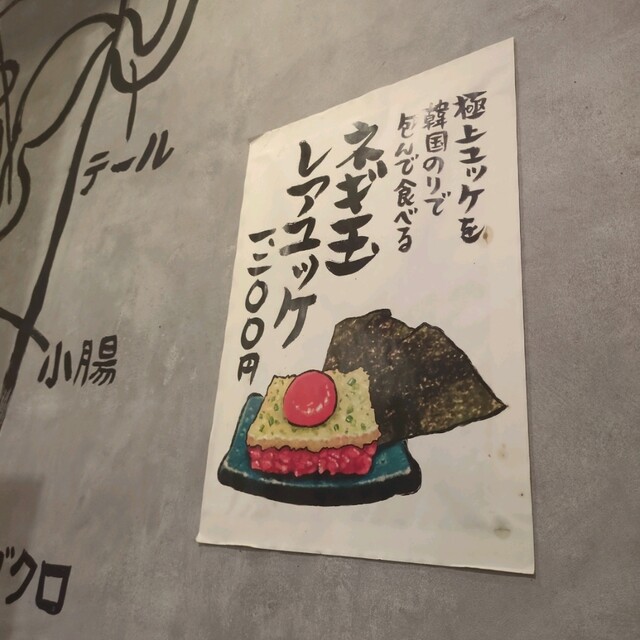 極上ユッケを
韓国のりで
包んで食べる
ネギ玉
レアユッケ
一三〇〇円
テール
小腸
クロ